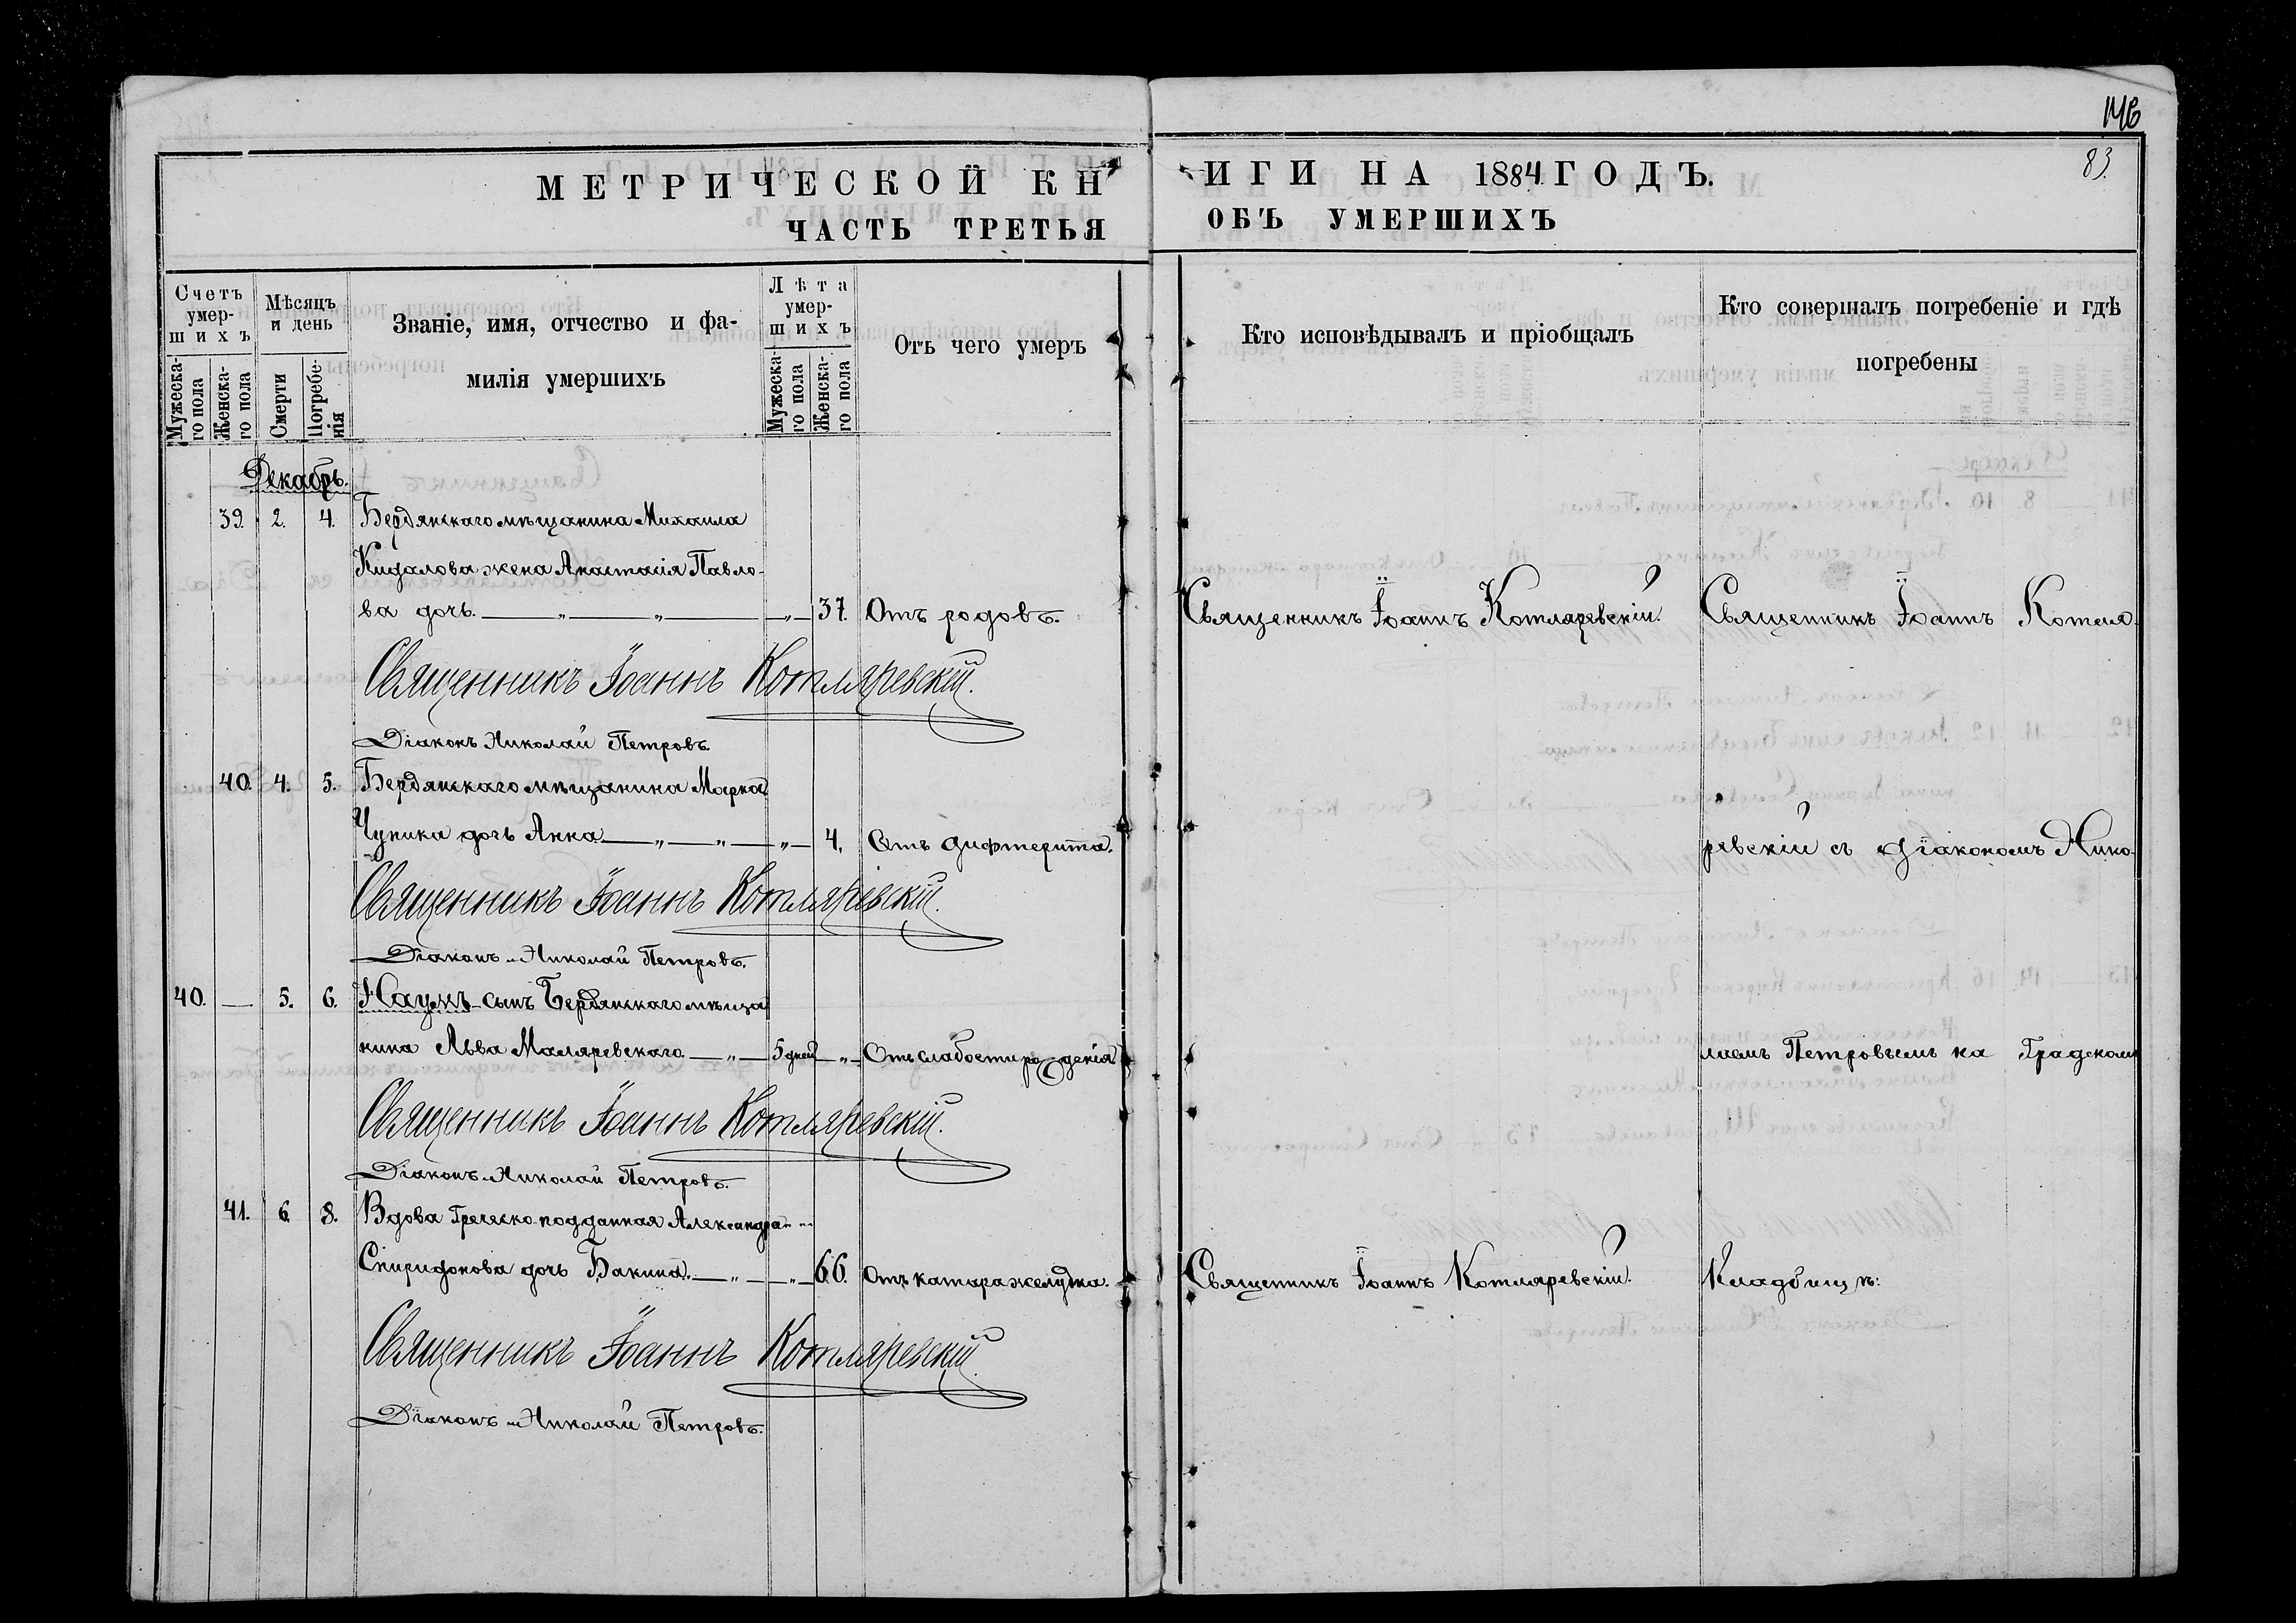 146
83.
МЕТРИЧЕСКОЙ КНИГИ НА 1884 ГОДЪ.
ЧАСТЬ ТРЕТЬЯ ОБЪ УМЕРШИХЪ
Счетъ умер-шихъ
Мужеска-го пола
Женска-го пола
Мѣсяцъ и день
Смерти
Погребе-нія
Званіе, имя, отчество и фа-
милія умершихъ
Лѣта умер-шихъ
Мужеска-го пола
Женска-го пола
Отъ чего умеръ
Кто исповѣдывалъ и пріобщалъ
Кто совершалъ погребеніе и гдѣ
погребены
Декабрь.
39. 2. 4. Бердянскаго мѣщанина Михаила
Кидалова жена Анастасія Павло-
ва дочь. — „ — „ — „ — 37. Отъ родовъ. Священникъ Іоаннъ Котляревскій. Священникъ Іоаннъ Котля-
Священникъ Іоаннъ Котляревскій.
Діаконъ Николай Петровъ.
40. 4. 5. Бердянскаго мѣщанина Марка
Чупика дочь Анна — „ — „ — „ — 4. Отъ дифтерита. ревскій съ діакономъ Нико-
Священникъ Іоаннъ Котляревскій.
Діаконъ Николай Петровъ.
40. — 5. 6. Наумъ - сынъ Бердянскаго мѣща
нина Льва Маляревскаго — „ — 5 дней — „ — Отъ слабости рожденія лаемъ Петровымъ на Градском
Священникъ Іоаннъ Котляревскій.
Діаконъ Николай Петровъ.
41. 6. 8. Вдова Греческо-подданная Александра
Спиридонова дочь Бакина. — „ — „ — 66. Отъ катара желудка. Священникъ Іоаннъ Котляревскій. Кладбищѣ:
Священникъ Іоаннъ Котляревскій.
Діаконъ Николай Петровъ.